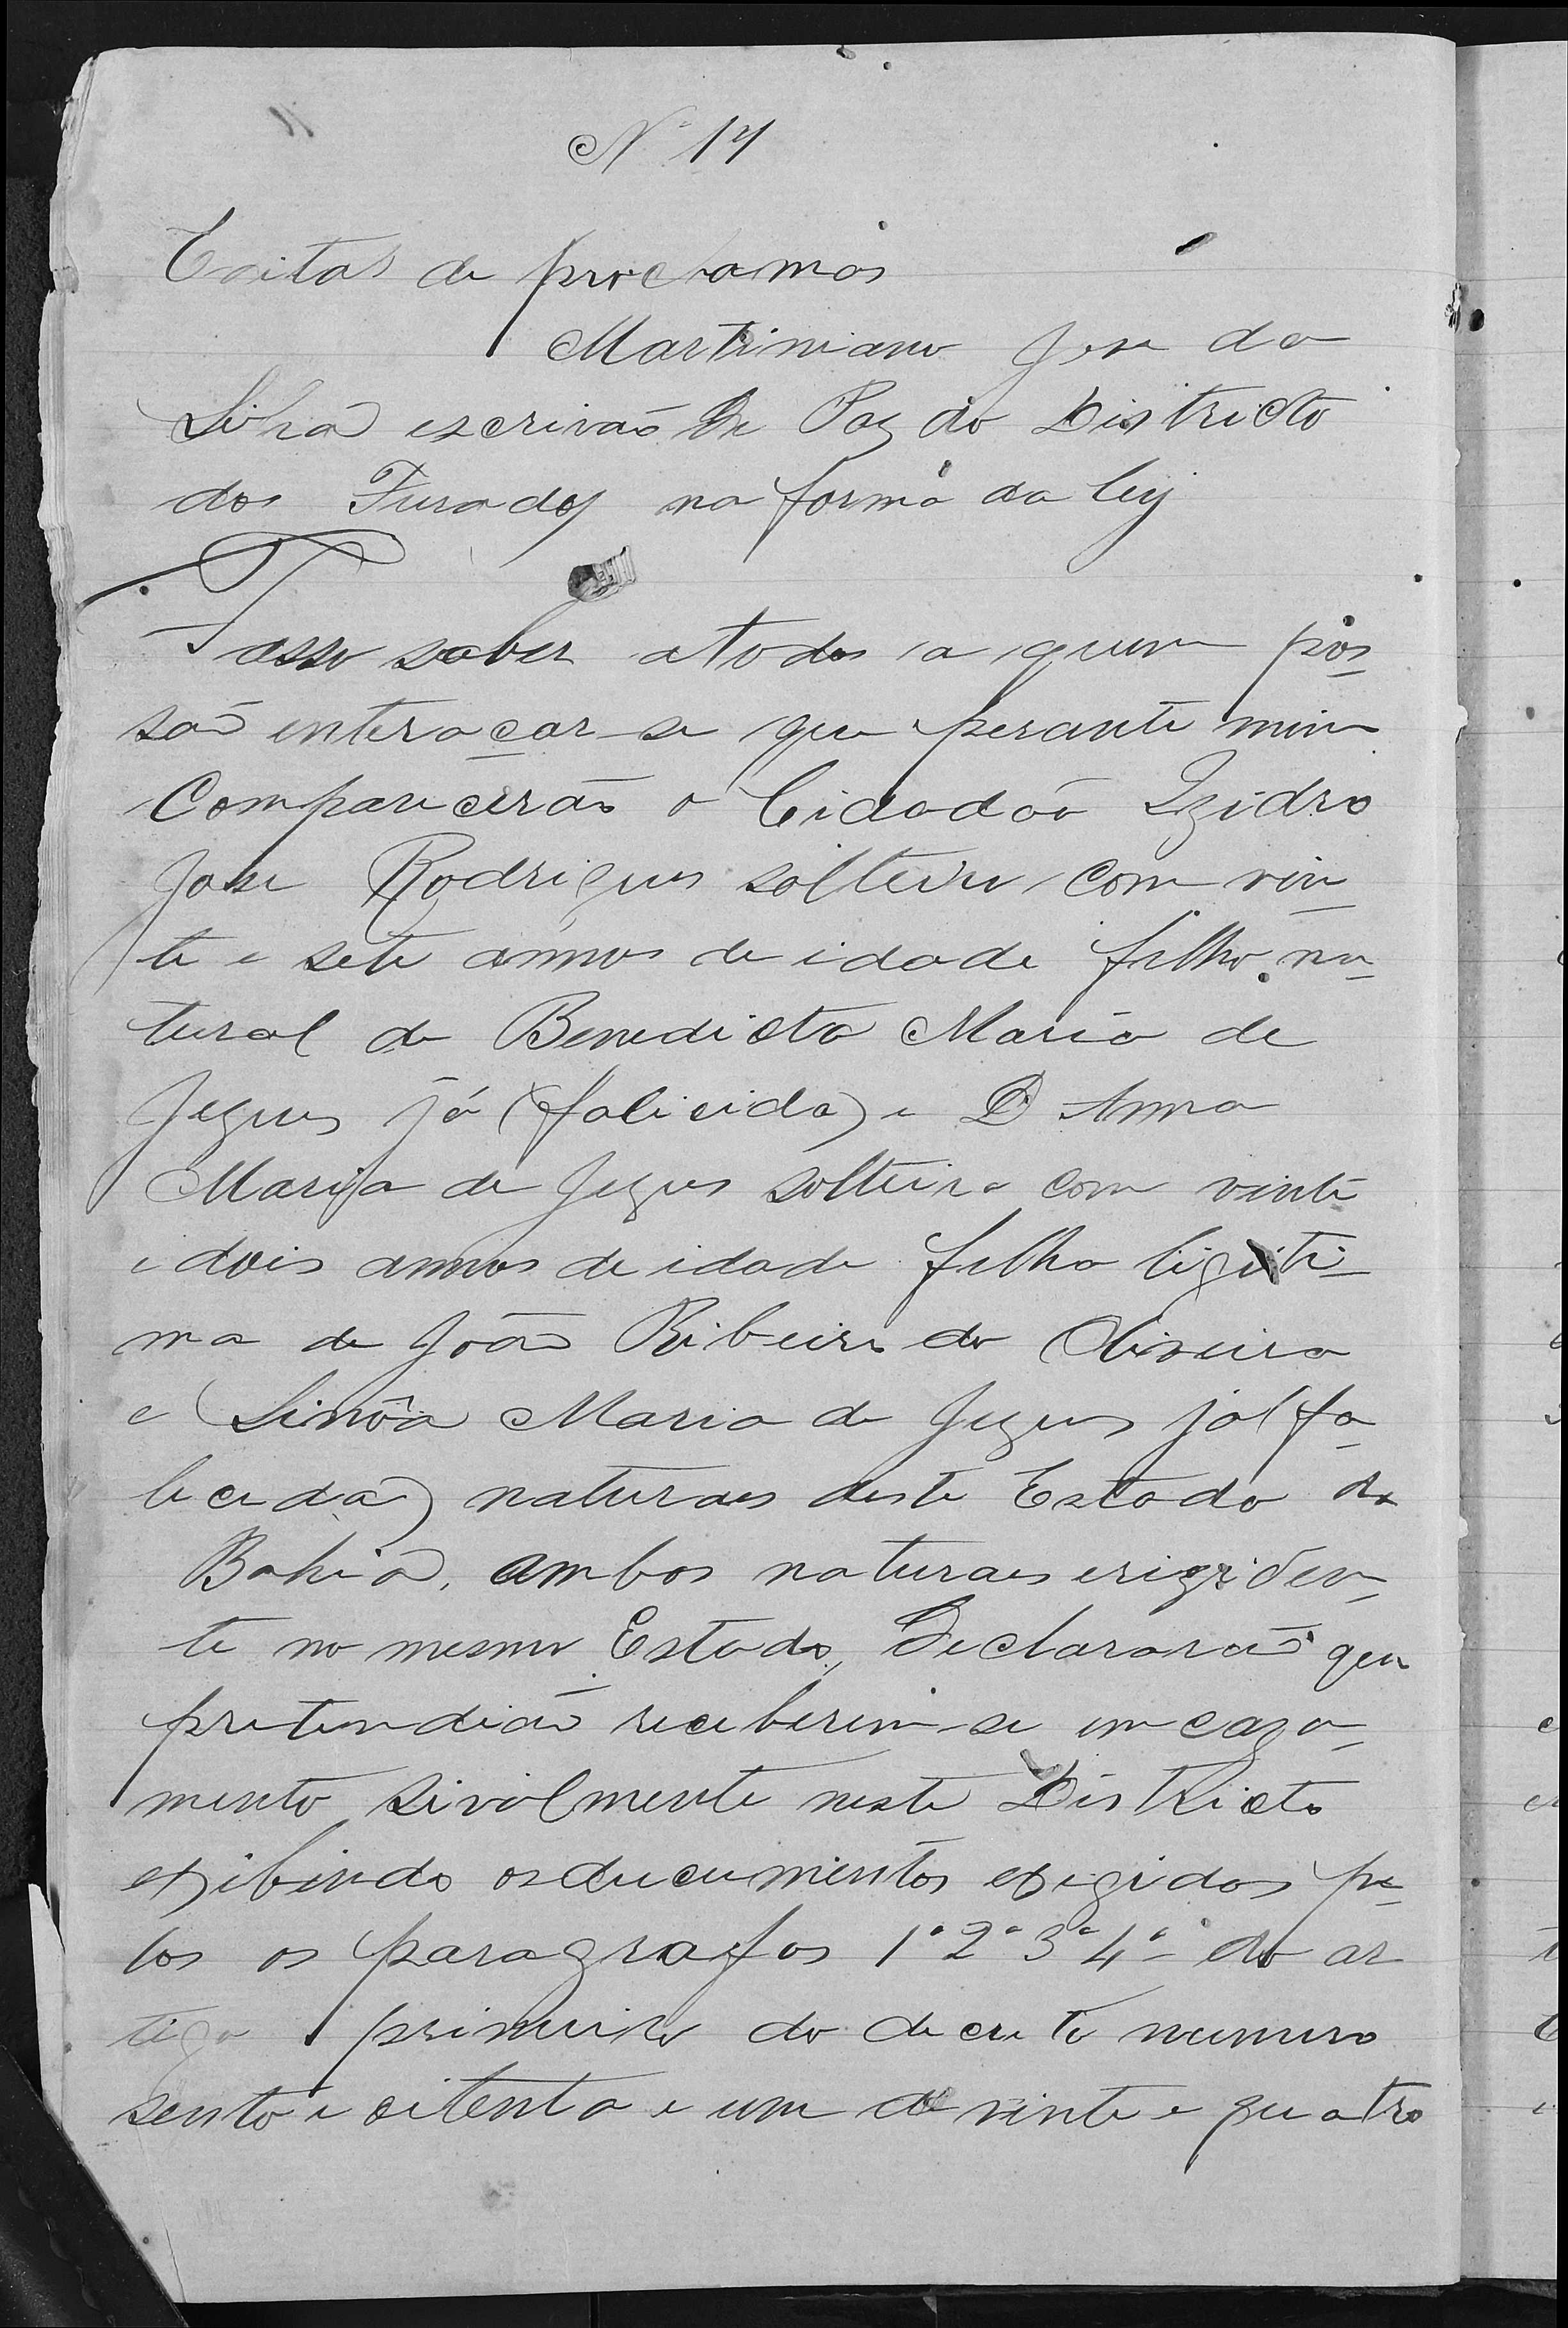 Nº 14
Editas de proclamas
Martiniano Jose da
Silva escrivão de Paz do Districto
dos Furados na forma da ley
Fasso saber atodos a quem pos-
são enteraçar-se que perante mim
Comparicerão o Cidadão Izidro
Jose Rodrigues solteiro com vin-
te e sete annos de idade filho na-
tural de Benedicta Maria de
Jezus já (falicida) e D Anna
Maria de Jezus solteira com vinte
e dois annos de idade filha ligiti-
ma de João Ribeiro de Oliveira
e Simôa Maria de Jezus já (fa-
licida) naturaes deste Estado da
Bahia, ambos naturaes eriziden-
te no mesmo Estado, Declararão que
pretendião receberem-se em caza-
mento sivilmente neste Districto
exibindo osducumentos exigidos pe-
los os paragrafos 1º 2º 3º 4º do ar
tigo primeiro do decreto numero
sento e oitenta e um de vinte e quatro